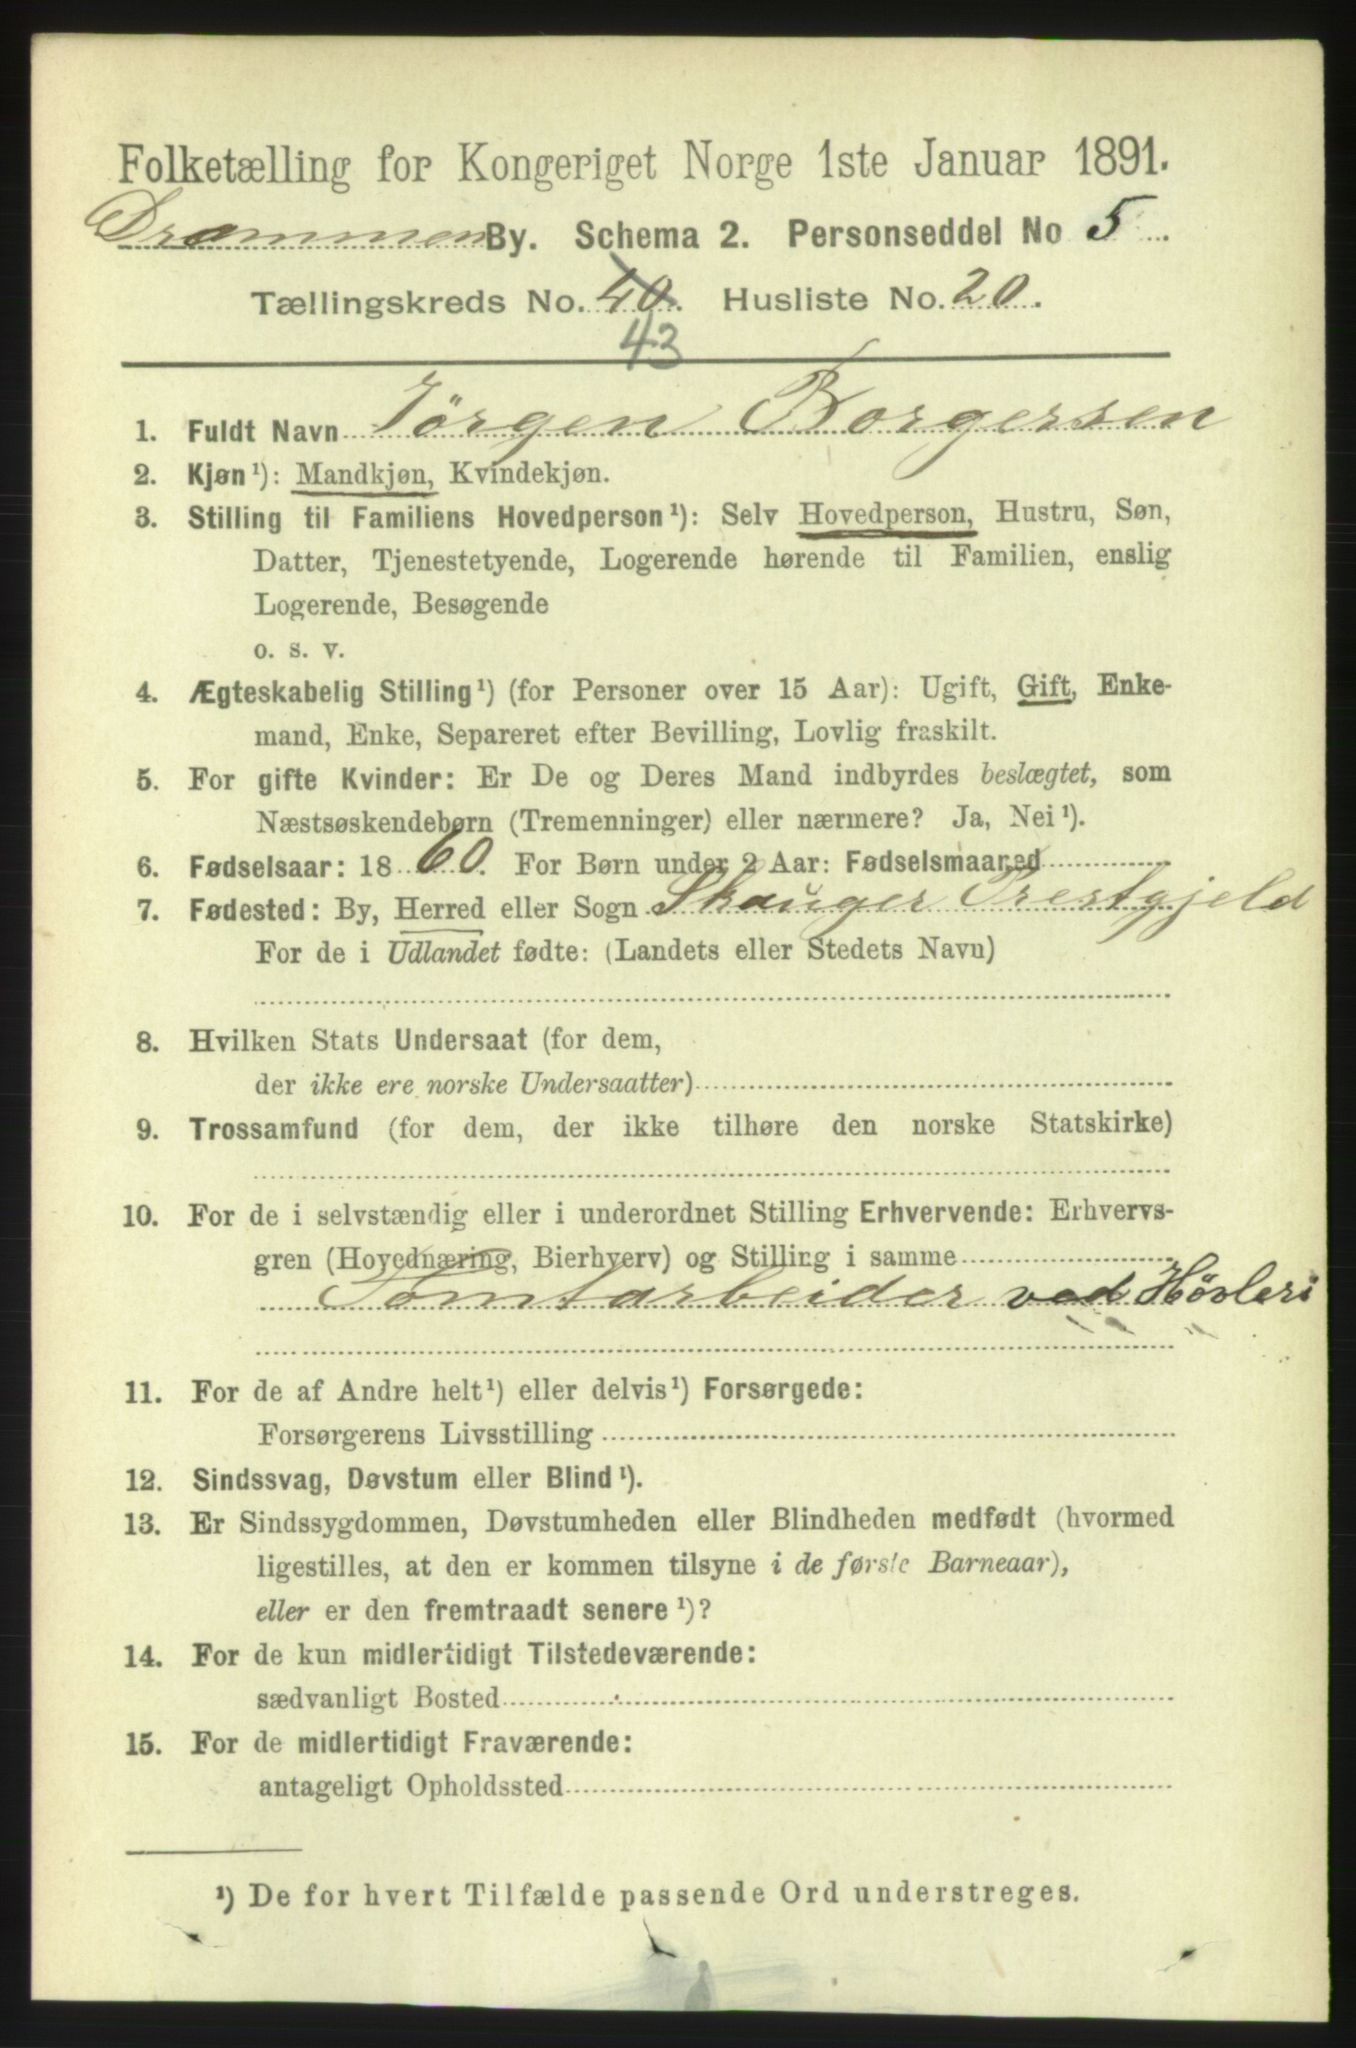 Folketælling for Kongeriget Norge 1ste Januar 1891.
Drammen By. Schema 2. Personseddel No 5
Tællingskreds No. 40. Husliste No. 20.
43
1. Fuldt Navn Jörgen Borgersen
2. Kjøn¹): Mandkjøn, Kvindekjøn.
3. Stilling til Familiens Hovedperson¹): Selv Hovedperson, Hustru, Søn,
Datter, Tjenestetyende, Logerende hørende til Familien, enslig
Logerende, Besøgende
o. s. v.
4. Ægteskabelig Stilling¹) (for Personer over 15 Aar): Ugift, Gift, Enke-
mand, Enke, Separeret efter Bevilling, Lovlig fraskilt.
5. For gifte Kvinder: Er De og Deres Mand indbyrdes beslægtet, som
Næstsøskendebørn (Tremenninger) eller nærmere? Ja, Nei¹).
6. Fødselsaar: 1860. For Børn under 2 Aar: Fødselsmaaned
7. Fødested: By, Herred eller Sogn Skauger Prestgjeld
For de i Udlandet fødte: (Landets eller Stedets Navn)
8. Hvilken Stats Undersaat (for dem,
der ikke ere norske Undersaatter)
9. Trossamfund (for dem, der ikke tilhøre den norske Statskirke)
10. For de i selvstændig eller i underordnet Stilling Erhvervende: Erhvervs-
gren (Hovednæring, Bierhverv) og Stilling i samme
Tomtarbeider ved Hövleri
11. For de af Andre helt¹) eller delvis¹) Forsørgede:
Forsørgerens Livsstilling
12. Sindssvag, Døvstum eller Blind¹).
13. Er Sindssygdommen, Døvstumheden eller Blindheden medfødt (hvormed
ligestilles, at den er kommen tilsyne i de første Barneaar),
eller er den fremtraadt senere¹)?
14. For de kun midlertidigt Tilstedeværende:
sædvanligt Bosted
15. For de midlertidigt Fraværende:
antageligt Opholdssted
¹) De for hvert Tilfælde passende Ord understreges.